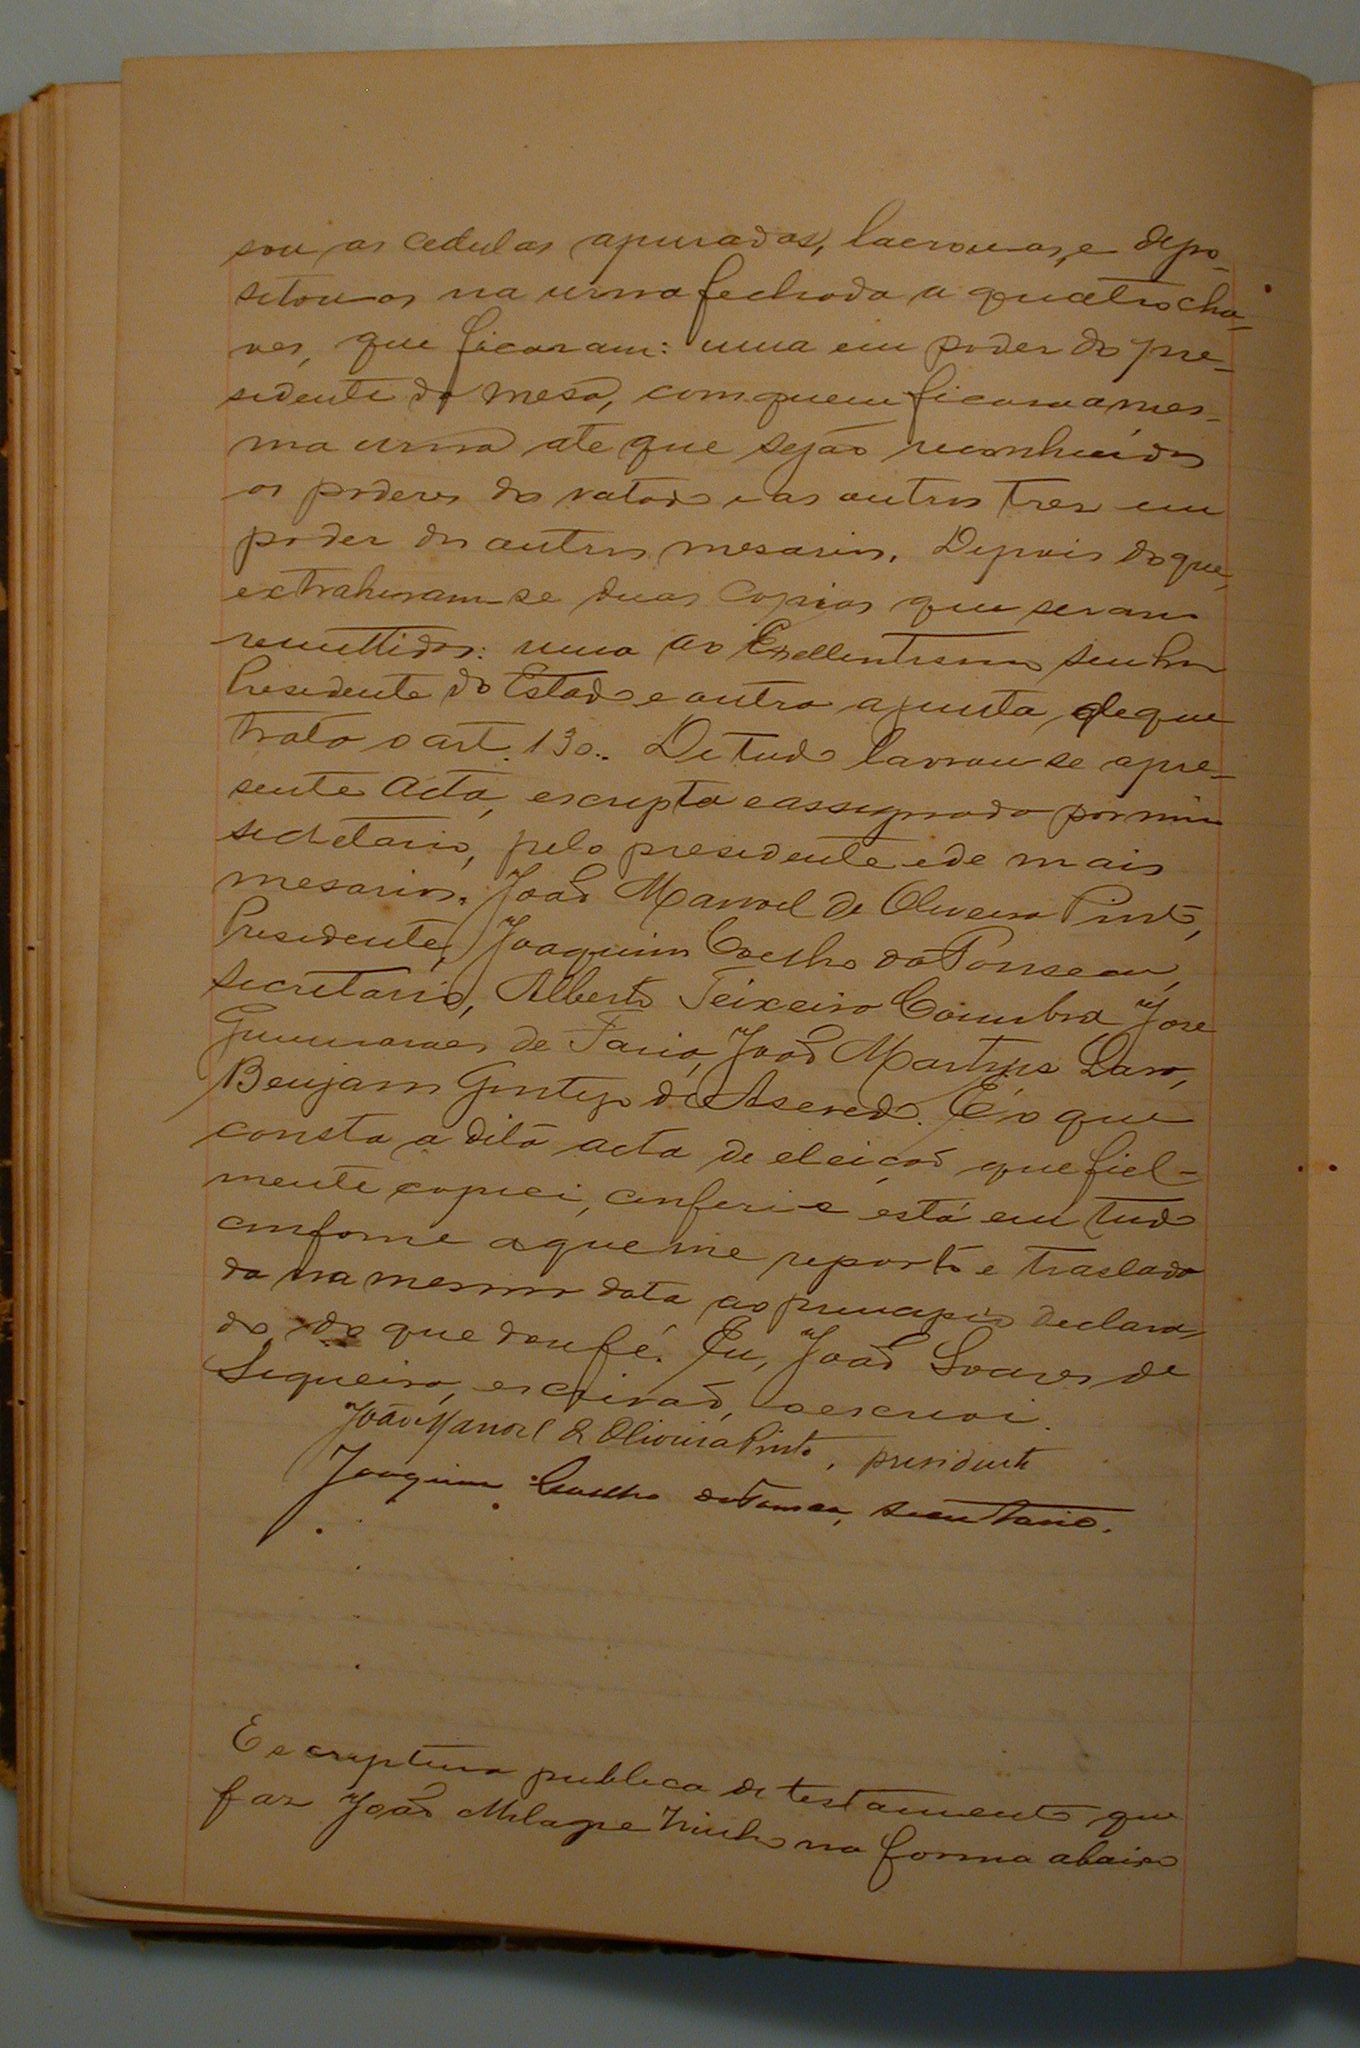 sou as cedulas apuradas, lacrou-as, e depo-
sitou-as na urna fechada a quatro cha-
ves, que ficaram: uma em poder do pre-
sidente da mesa, com quem ficara a mes-
ma urna ate que sejão reconhecidos
os poderes do votado e as outras tres em
poder dos outros mesarios. Depois do que,
extrahiram-se duas copias que seram
remettidas: uma ao Exellentissimo Senhor
Presidente do Estado e outra a junta de que
trata o art. 130. De tudo lavrou-se a pre-
sente acta, escripta e assignada por mim
secretario, pelo presidente e de mais
mesarios. João Manoel de Oliveira Pinto,
Presidente, Joaquim Coelho da Fonseca,
Secretario, Alberto Teixeira Coimbra, Jose
Guimaraes de Faria, João Martins
Benjam de Aseredo. É o que
consta a dita acta de eleição que fiel-
mente copiei, conferi e está em tudo
conforme a que me reporto e traslada
da na mesma data ao principio declara-
do do que dou fé. Eu, João Soares de
Siqueira, escrivão, o escrevi.
João Manoel de Oliveira Pinto, presidente
Joaquim Coelho da Fonseca, secretario.
Escriptura publica de testamento que
faz João na forma abaixo